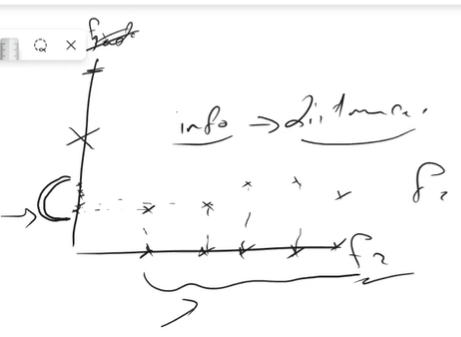 f₁
info → distance.
f₂
f₂